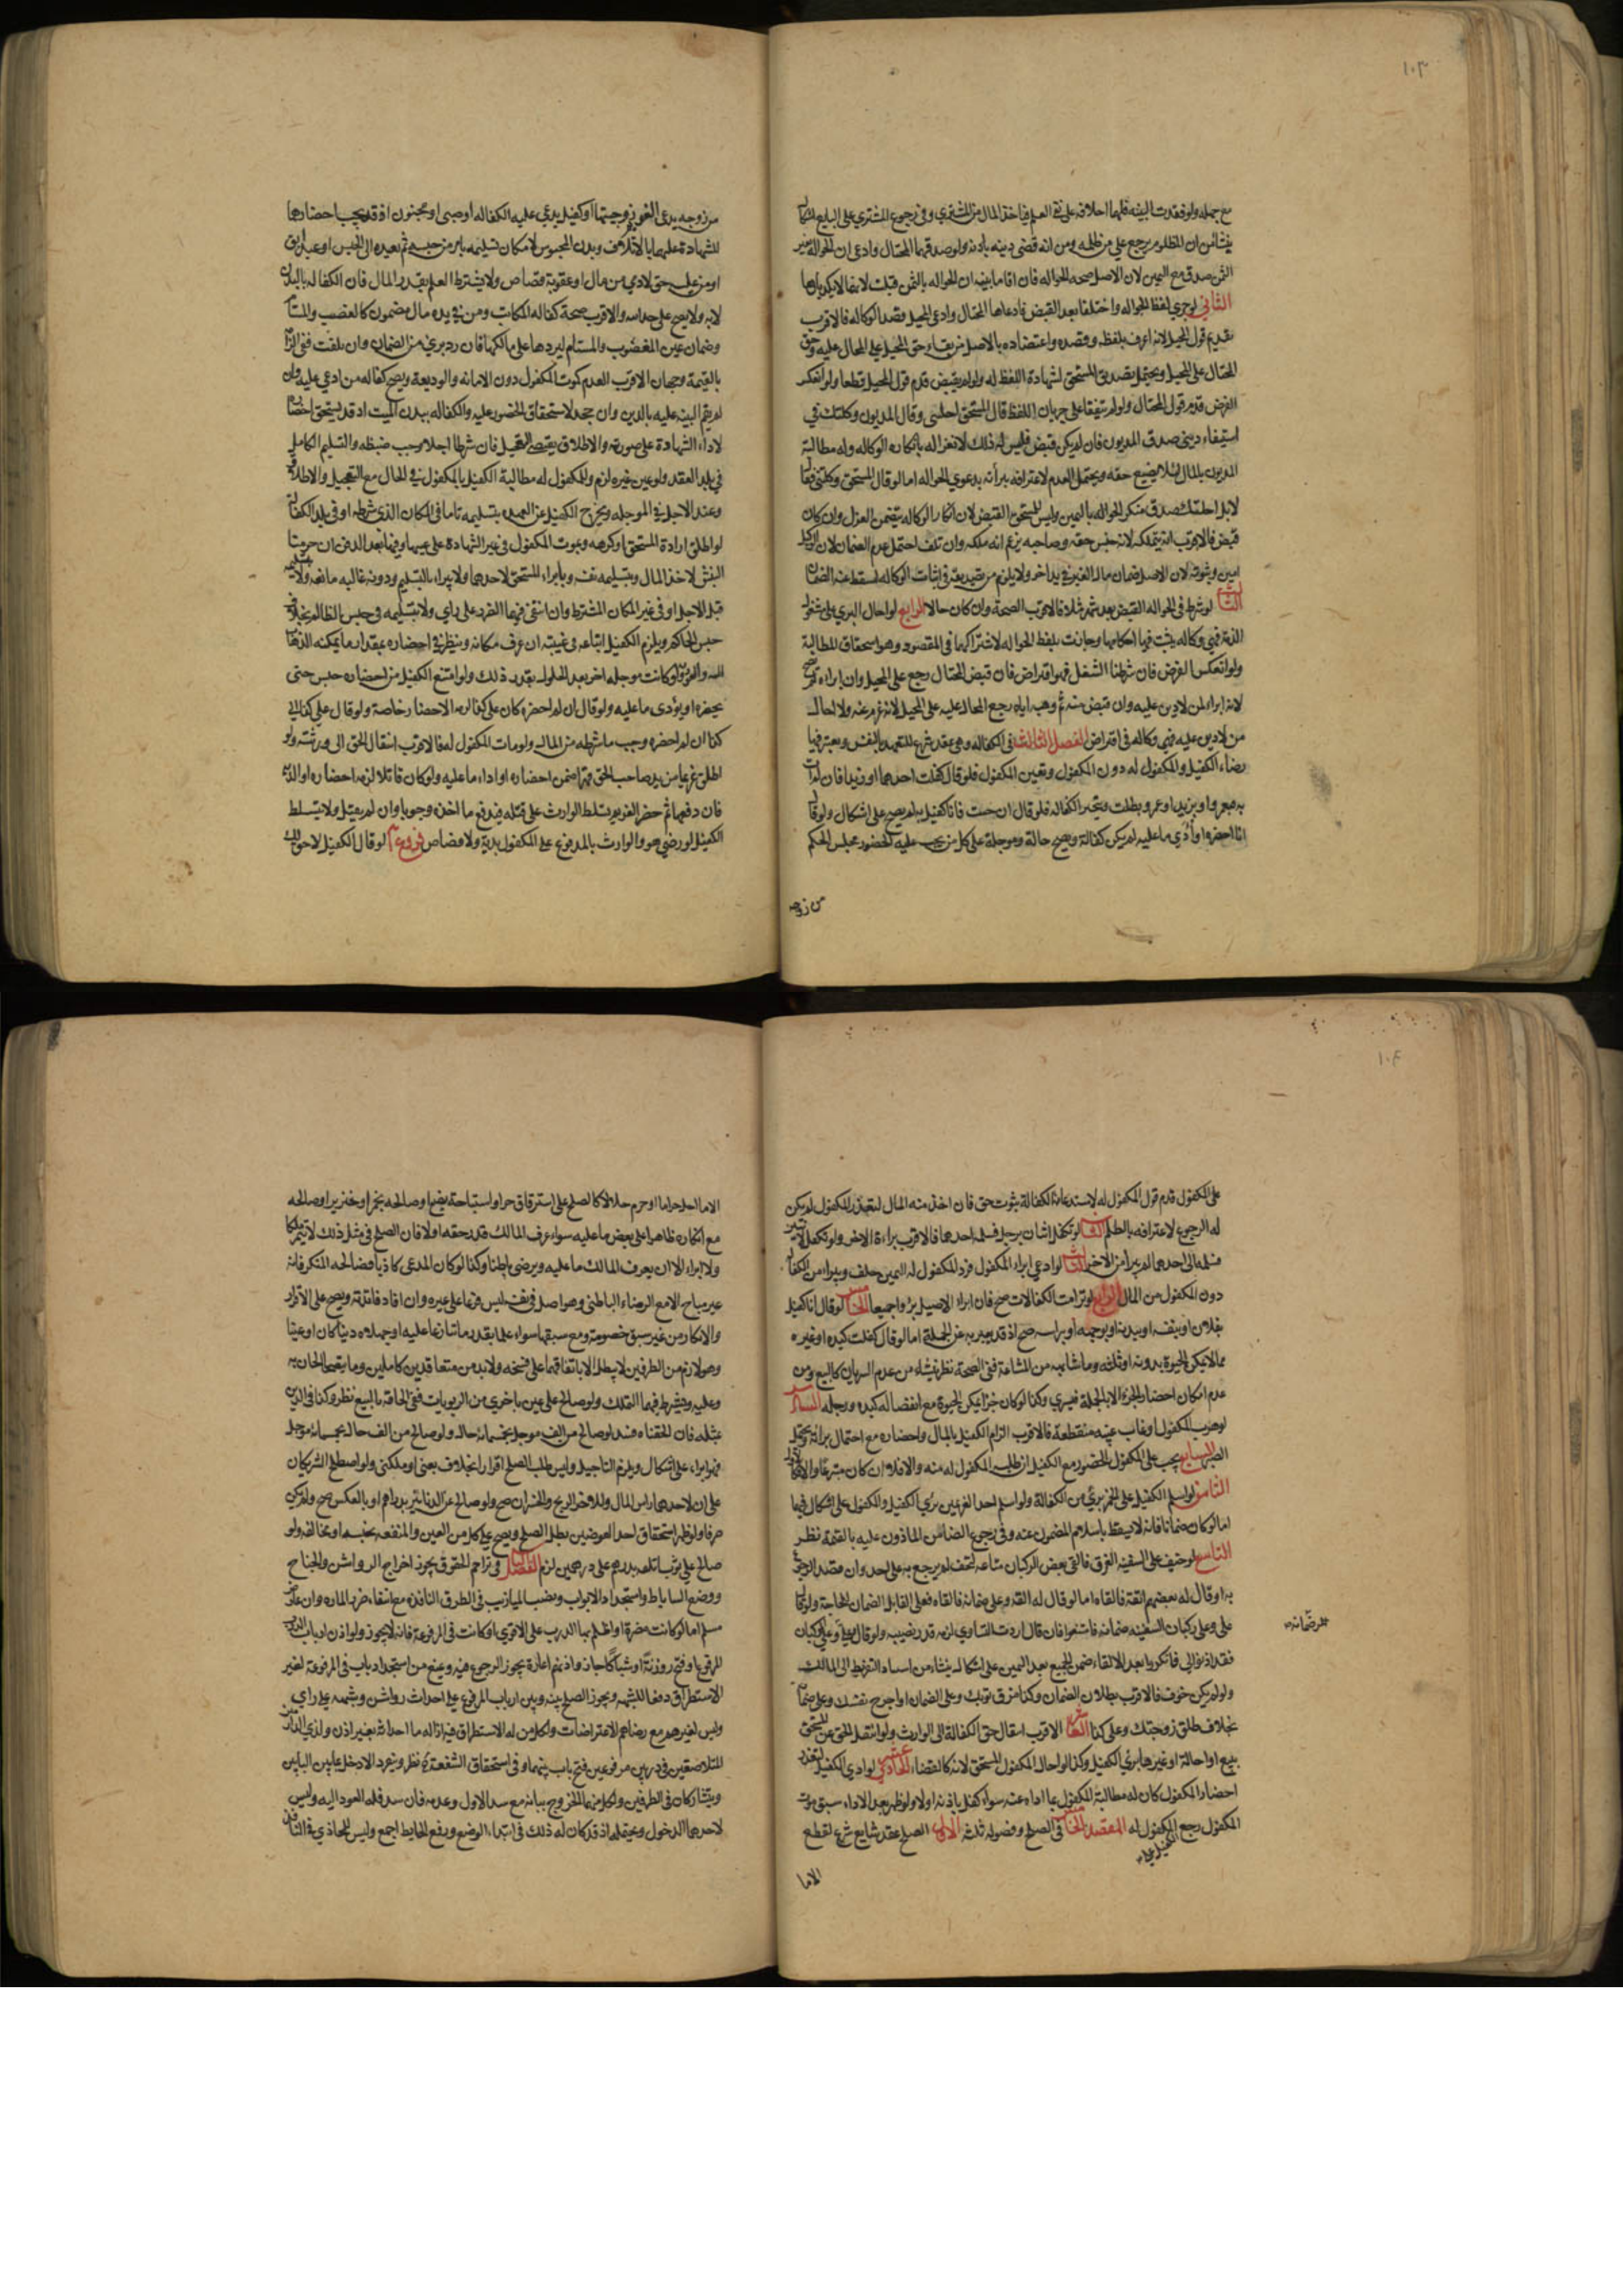 ١٠٣
مع جهله ولو فقدت البينة فلهما احلافه على نفي العلم فياخذ المال من المشتري وفي رجوع المشتري على البايع اشكال
ينشا من ان المظلوم يرجع على من ظلمه ومن انه قضى دينه باذنه ولو صدقهما المحتال وادعى ان الحوالة بغير
الثمن صدق مع اليمين لان الاصل صحه الحواله فان اقاما بينه ان الحواله بالثمن قبلت لانهما لا يكذبانها
الثاني لو جرى لفظ الحواله واختلفا بعد القبض فادعاها المحتال وادعى المحيل قصد الوكاله فالاقرب
تقديم قول المحيل لانه اعرف بلفظه وقصده واعتضاده بالاصل من بقاء حق المحيل على المحال عليه وحق
المحتال على المحيل ويحتمل تصديق المستحق لشهادة اللفظ له ولو لم يقبض قدم قول المحيل قطعا ولو انعكس
الفرض قدم قول المحتال ولو لم يتفقا على جريان اللفظ بل قال المستحق احلتني وقال المديون وكلتك في
استيفاء ديني صدق المديون فان لم يكن قبض فليس له ذلك لانعزاله بانكاره الوكاله وله مطالبة
المديون بالمال لئلا يضيع حقه ويحتمل العدم لاعترافه ببرأته بدعوى الحواله اما لو قال المستحق وكلتني فقال
لا بل احلتك صدق منكر الحواله باليمين وليس للمستحق القبض لان انكار الوكاله يتضمن العزل وان كان
قبض فالاقرب انه يتملكه لانه جنس حقه وصاحبه يزعم انه ملكه وان تلف احتمل عدم الضمان لان الوكيل
امين وثبوته لان الاصل ضمان مال الغير في يد اخر ولا يلزم من تصديقه في اثبات الوكاله لسقط عنه الضمان
الثالث لو شرط في الحواله القبض بعد شهر مثلا فالاقرب الصحة وان كان حالا الرابع لو احال البري على مشغول
الذمة فهي وكاله يثبت فيها احكامها وجازت بلفظ الحواله لاشتراكهما في المقصود وهو استحقاق المطالبة
ولو انعكس الفرض فان شرطنا الشغل فهو اقتراض فان قبض المحتال رجع على المحيل وان ابراه لم يصح
لانه ابراء لمن لا دين عليه وان قبض منه ثم وهبه اياه رجع المحال عليه على المحيل لانه غرم عنه ولو احال
من لا دين عليه فهي وكاله في اقتراض الفصل الثالث في الكفاله وهي عقد شرع للتعهد بالنفس ويعتبر فيها
رضاء الكفيل والمكفول له دون المكفول وتعيين المكفول فلو قال كفلت احدهما او زيدا فان لم ات
به فبعمرو او بزيد او عمرو بطلت وتنجيز الكفاله فلو قال ان جئت فانا كفيل به لم يصح على اشكال ولو قال
انا احضره او أدي ما عليه لم يكن كفالة ويصح حالة وموجلة على كل من يجب عليه الحضور مجلس الحكم
من زوجه
من زوجه يدعي الغريم زوجيتها او كفيل يدعي عليه الكفاله او صبي او مجنون اذ قد يجب احضارهما
للشهادة عليهما بالاتلاف وبدن المحبوس لامكان تسليمه بامر من حبسه ثم بعيده الى الحبس او عبد آبق
او من عليه حق لادمي من مال او عقوبة قصاص ولا يشترط العلم بقدر المال فان الكفاله بالبدن
لا به ولا يصح على حد الله والاقرب صحة كفاله المكاتب ومن في يده مال مضمون كالغصب والمستام
وضمان عين المغصوب والمستام ليردها على مالكها فان رد بري من الضمان وان تلفت ففي الزامه
بالقيمة وجهان الاقرب العدم كموت المكفول دون الامانه والوديعة ويصح كفاله من ادعي عليه وان
لم يقم البينه عليه بالدين وان جحد لاستحقاق الحضور عليه والكفاله ببدن الميت اذ قد يستحق احضاره
لاداء الشهادة على صورته والاطلاق يقتضي التعجيل فان شرطا اجلا وجب ضبطه والتسليم الكامل
في بلد العقد ولو عين غيره لزم وللمكفول له مطالبة الكفيل بالمكفول في الحال مع التعجيل والاطلاق
وعند الاجل في الموجله ويخرج الكفيل عن العهده بتسليمه تاما في المكان الذي شرطه او في بلد الكفاله
لو اطلق ارادة المستحق او كرهه وبموت المكفول في غير الشهادة على عينه او فيها بعد الدفن ان حرمنا
النبش لاخذ المال وبتسليمه نفسه وبابراء المستحق لاحدهما ولا يبراء بالتسليم ودونه غالبه مانعه ولا بتسليمه
قبل الاجل او في غير المكان المشترط وان انتفى فيهما الضرر على راي ولا بتسليمه في حبس الظالم بخلاف
حبس الحاكم ويلزم الكفيل اتباعه في غيبته ان عرف مكانه وينظر في احضاره بمقدار ما يمكنه الذهاب
اليه والعود ولو كانت موجله اخر بعد الحلول بقدر ذلك ولو امتنع الكفيل من احضاره حبس حتى
يحضره او يؤدى ما عليه ولو قال ان لم احضره كان على كذا لزمه الاحضار خاصة ولو قال علي كذا الى
كذا ان لم احضره وجب ما شرطه من المال ولو مات المكفول له فالاقرب انتقال الحق الى ورثته ولو
اطلق غريما من يد صاحب الحق قهرا ضمن احضاره او اداء ما عليه ولو كان قاتلا لزمه احضاره او الديه
فان دفعها ثم حضر الغريم تسلط الوارث على قتله فيدفع ما اخذه وجوبا وان لم يقتل ولا يتسلط
الكفيل لو رضي هو والوارث بالمدفوع على المكفول بدية ولا قصاص فروع آ لو قال الكفيل لا حق لك
١٠٤
على المكفول قدم قول المكفول له لاستدعاء الكفالة ثبوت حق فان اخذ منه المال لتعذر المكفول لم يكن
له الرجوع لاعترافه بالظلم الثاني لو تكفل اثنان برجل فسلمه احدهما فالاقرب براءة الاخر ولو تكفل لاثنين
فسلمه الى احدهما لم يبرأ من الاخر الثالث لو ادعى ابراء المكفول فرد المكفول له اليمين حلف وبراء من الكفاله
دون المكفول من المال الرابع لو ترامت الكفالات صح فان ابراء الاصيل برؤا جميعا الخامس لو قال انا كفيل
بفلان او بنفسه او ببدنه او بوجهه او براسه صح اذ قد يعبر به عن الجملة اما لو قال كفلت كبده او غيره
مما لا يمكن الحيوة بدونه او ثلثه وما شابهه من المشاعة ففي الصحة نظر ينشاء من عدم السريان كالبيع ومن
عدم امكان احضار الجزء الا بالجملة فيسري وكذا لو كان جزا يمكن الحيوة مع انفصاله كيده ورجله السادس
لو هرب المكفول او غاب غيبه منقطعة فالاقرب الزام الكفيل بالمال واحضاره مع احتمال براته ويحتمل
الصبر السابع يجب على المكفول الحضور مع الكفيل ان طلبه المكفول له منه والا فلا ان كان متبرعا والا
الثامن لو اسلم الكفيل على الخمر برئ من الكفالة ولو اسلم احد الغريمين برئ الكفيل والمكفول على اشكال فيها
اما لو كان ضمانا فانه لا يسقط باسلام المضمون عنه وفي رجوع الضامن الماذون عليه بالقيمة نظر
التاسع لو خيف على السفينه الغرق فالقى بعض الركبان متاعه لتخف لم يرجع به على احد وان قصد الرجوع
به او قال له بعضهم القه فالقاه اما لو قال له القه وعلى ضمانه فالقاه فعلى القايل الضمان للحاجة ولو قال
على وعلى ركبان السفينه ضمانه فامتنعوا فان قال اردت التساوي لزمه قدر نصيبه ولو قال علي وعلى الركبان
للرضمانه
فقد اذنوا لي فانكروا بعد الالقاء ضمن الجميع بعد اليمين على اشكال ينشاء من استناد التفريط الى المالك
ولو لم يكن خوف فالاقرب بطلان الضمان وكذا مزق ثوبك وعلى الضمان او اجرح نفسك وعلى ضمانه
بخلاف طلق زوجتك وعلى كذا العاشر الاقرب انتقال حق الكفالة الى الوارث ولو انتقل الحق عن المستحق
ببيع او احالة او غيرهما برئ الكفيل وكذا لو احال المكفول المستحق لانه كالقضاء الحادي عشر لو ادى الكفيل لتعذر
احضار المكفول كان له مطالبة المكفول بما اداه عنه سواء كفل باذنه او لا ولو ظهر بعد الاداء سبق موت
المكفول رجع الكفيل على المكفول له المقصد الخامس في الصلح وفصوله ثلثة الاول الصلح عقد شايع شرع لقطع
الاما
الا ما احل حراما او حرم حلالا كالصلح على استرقاق حر او استباحة بضع او صالحه بخمر او خنزير او صالحه
مع انكاره ظاهرا على بعض ما عليه سواء عرف المالك قدر حقه او لا فان الصلح في مثل ذلك لا يثمر ملكا
ولا ابراء الا ان يعرف المالك ما عليه ويرضى باطنا وكذا لو كان المدعى كاذبا فصالحه المنكر فانه
غير مباح الا مع الرضاء الباطني وهو اصل في نفسه ليس فرعا على غيره وان افاد فائدته ويصح على الاقرار
والانكار من غير سبق خصومة ومع سبقها سواء علما بقدر ما تنازعا عليه او جهلاه دينا كان او عينا
وهو لازم من الطرفين لا يبطل الا باتفاقهما على فسخه ولا بد من متعاقدين كاملين وما يقع الحان به
وعليه ويشترط فيهما التملك ولو صالح على عين باخرى من الربويات ففي الحاقه بالبيع نظر وكذا في الدين
بمثله فان الحقناه فسد لو صالح من الف موجل بخمسمائة حالة ولو صالح من الف حال بخمسمائة موجل
فهو ابراء على اشكال ويلزم التاجيل وليس طلب الصلح اقرارا بخلاف بعني او ملكني ولو اصطلح الشريكان
على ان لاحدهما راس المال وللاخر الربح والخسران صح ولو صالح عن الدنانير بدراهم او بالعكس صح ولم يكن
صرفا ولو ظهر استحقاق احد العوضين بطل الصلح ويصح على كل من العين والمنفعه بجنسه او مخالفه ولو
صالح على ثوب اتلفه بدرهم على درهمين لزم الفصل الثاني في تزاحم الحقوق يجوز اخراج الرواشن والجناح
ووضع الساباط واستجداد الابواب ونصب الميازيب في الطرق النافذه مع انتفاء ضرر الماره وان عارض
مسلم اما لو كانت مضرة او اظلم بها الدرب على الاقوى او كانت في المرفوعة فانه لا يجوز ولو اذن ارباب الدرب
المرفوع او فتح روزنة او شباكا جاز واذنهم اعارة يجوز الرجوع فيه ويمنع من استجداد باب في المرفوعة لغير
الاستطراق دفعا للشبهه ويجوز الصلح بينه وبين ارباب المرفوع على احداث رواشن وشبهه على راي
وليس لغيرهم مع رضاهم الاعتراضات ولكل من له الاستطراق فيه ازاله ما احدثه بغير اذن ولذي الدارين
المتلاصقتين في دربين مرفوعين فتح باب بينهما وفي استحقاق الشفعة ح نظر وينفرد الادخل بما بين البابين
ويتشاركان في الطرفين ولكل منهما الخروج ببابه مع سد الاول وعدمه فان سد فله العود اليه وليس
لاحدهما الدخول ويحتمله اذ قد كان له ذلك في ابتداء الوضع ورفع الحايط اجمع وليس للمحاذي في النافذ